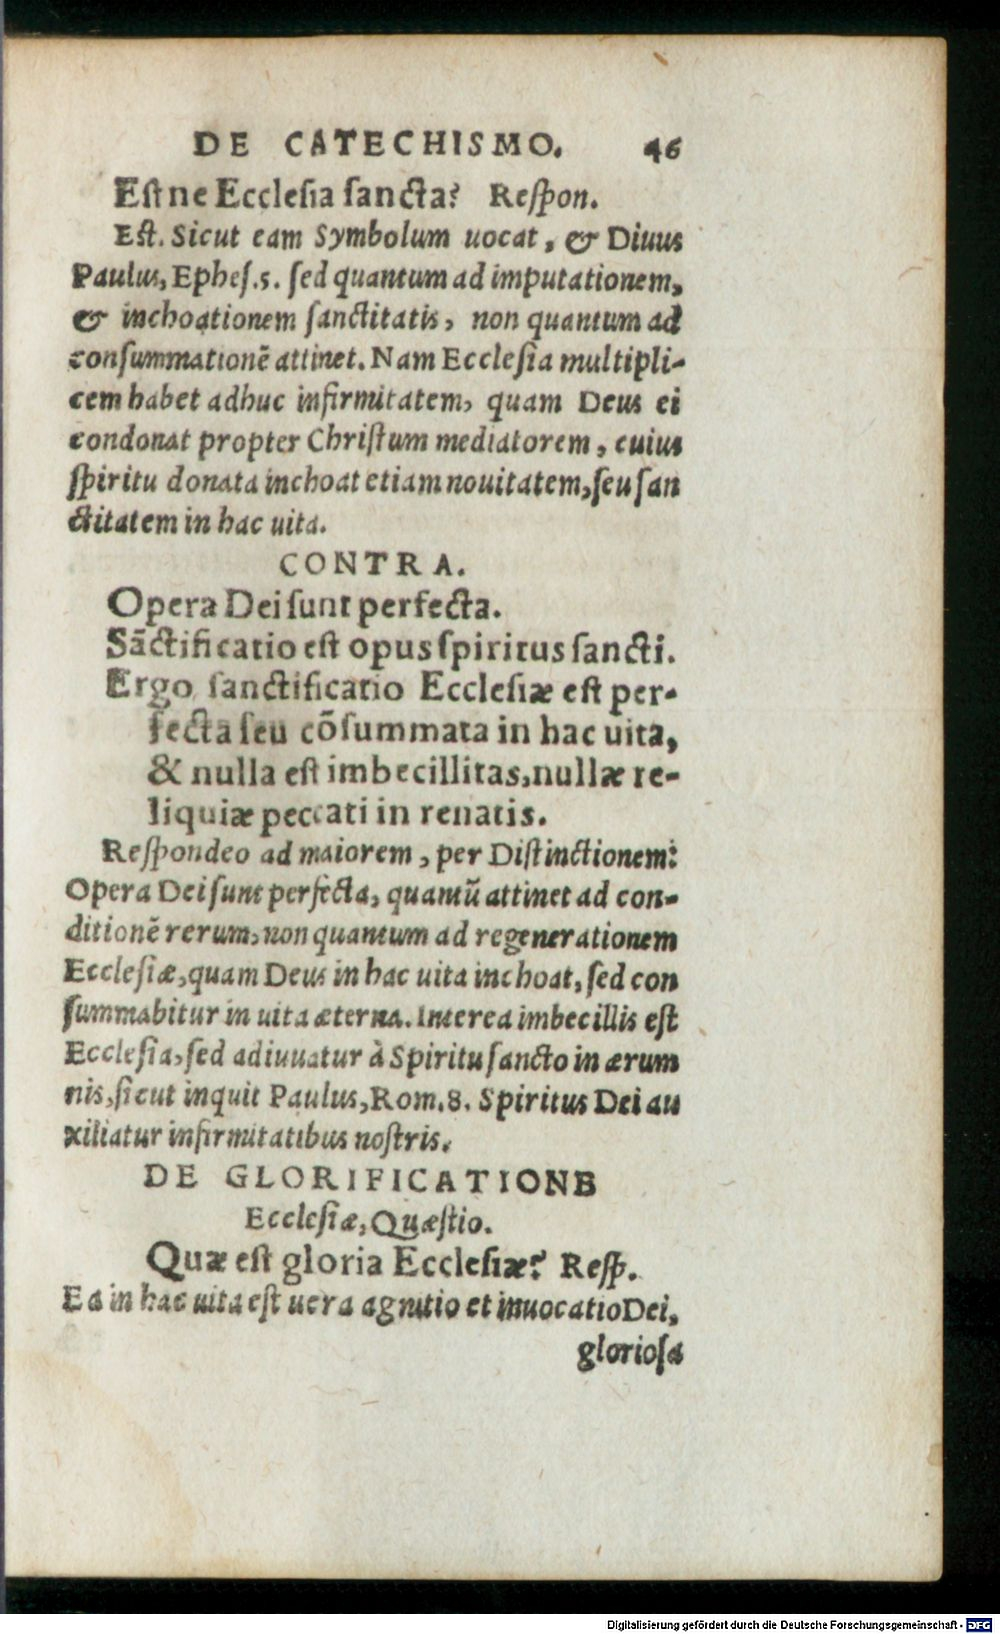 DE CATECHISMO. 46
Estne Ecclesia sancta? Respon.
Est. Sicut eam Symbolum uocat, & Diuus
Paulus, Ephes.5. sed quantum ad imputationem,
& inchoationem sanctitatis, non quantum ad
consummationē attinet. Nam Ecclesia multipli-
cem habet adhuc infirmitatem, quam Deus ei
condonat propter Christum mediatorem, cuius
spiritu donata inchoat etiam nouitatem, seu san
ctitatem in hac uita.
CONTRA.
Opera Dei sunt perfecta.
Sāctificatio est opus spiritus sancti.
Ergo sanctificatio Ecclesiæ est per-
fecta seu cōsummata in hac uita,
& nulla est imbecillitas, nullæ re-
liquiæ peccati in renatis.
Respondeo ad maiorem, per Distinctionem:
Opera Dei sunt perfecta, quantū attinet ad con-
ditionē rerum, non quantum ad regenerationem
Ecclesiæ, quam Deus in hac uita inchoat, sed con
summabitur in uita æterna. Interea imbecillis est
Ecclesia, sed adiuuatur à Spiritu sancto in ærum
nis, sicut inquit Paulus, Rom.8. Spiritus Dei au
xiliatur infirmitatibus nostris.
DE GLORIFICATIONE
Ecclesiæ, Quæstio.
Quæ est gloria Ecclesiæ? Resp.
Ea in hac uita est uera agnitio et inuocatio Dei,
gloriosa
Digitalisierung gefördert durch die Deutsche Forschungsgemeinschaft - DFG